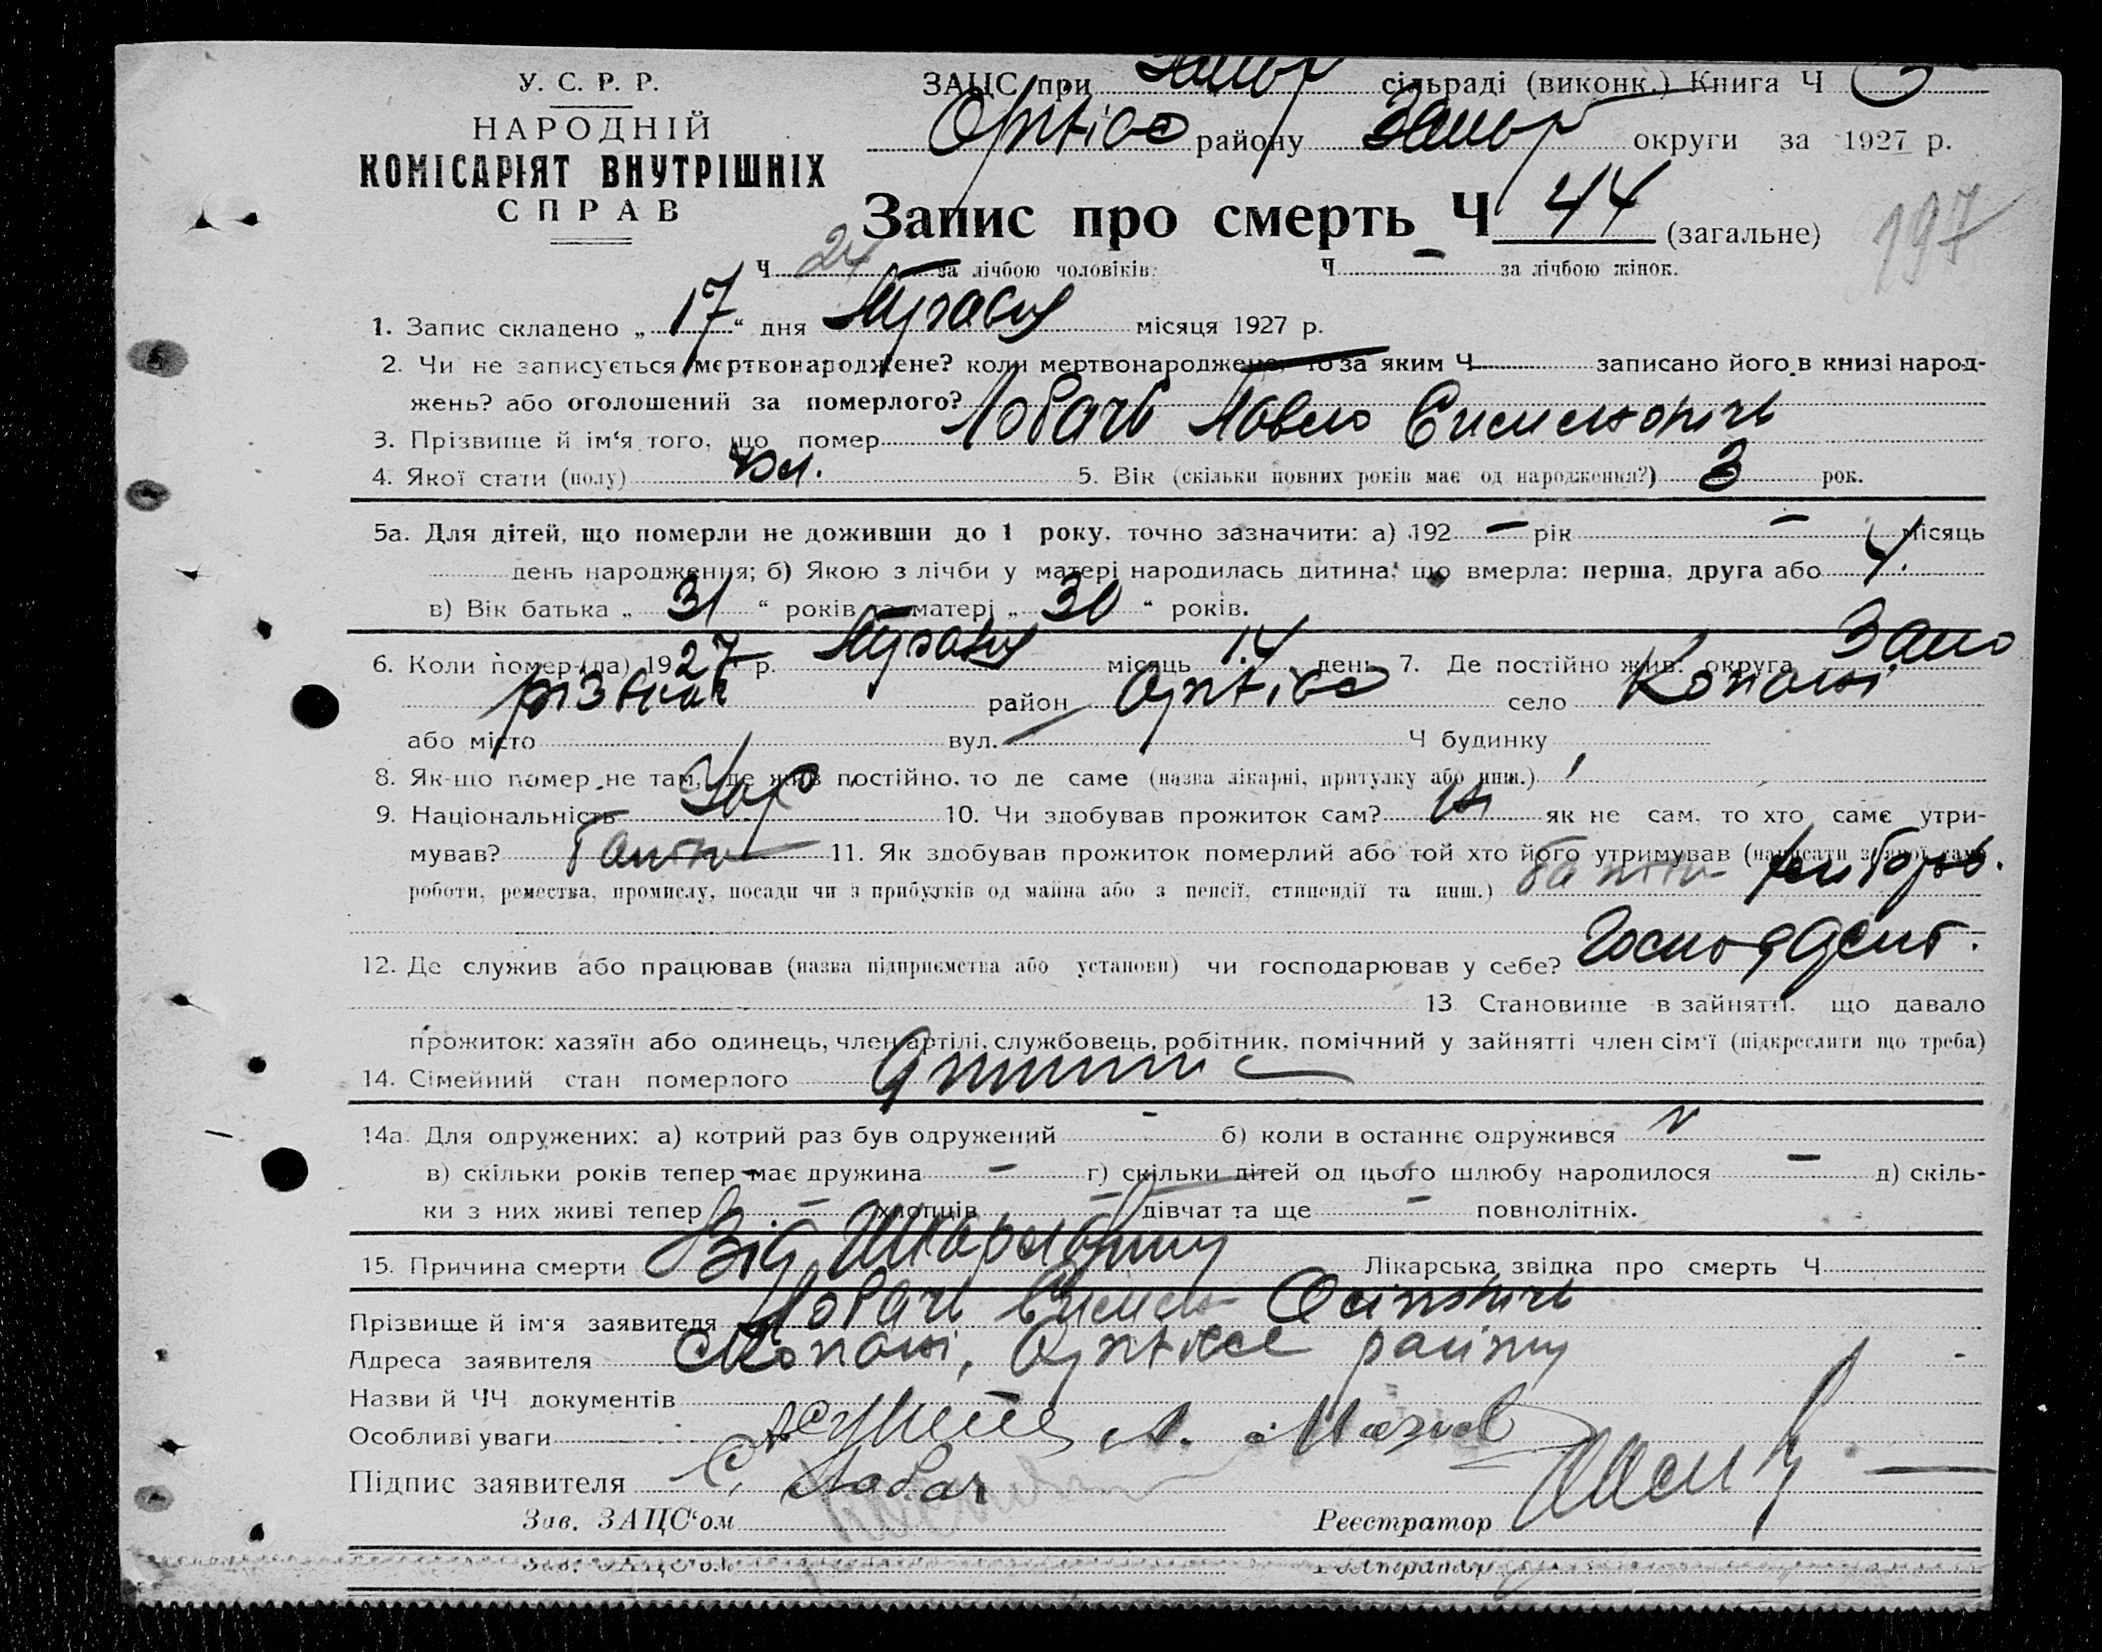 У. С. Р. Р.
НАРОДНІЙ
КОМІСАРІЯТ ВНУТРІШНІХ
СПРАВ
ЗАЦС при сільраді (виконк.) Книга Ч
району округи за 1927 р.
Запис про смерть Ч 44 (загальне)
197
Ч 24 за лічбою чоловіків. Ч — за лічбою жінок.
1. Запис складено „ 17 “ дня Травня місяця 1927 р.
2. Чи не записується мертвонароджене? коли мертвонароджене, то за яким Ч записано його в книзі народ-
жень? або оголошений за померлого?
3. Прізвище й ім‘я того, що помер Лобачь Павло
4. Якої стати (полу) чол. 5. Вік (скільки повних років має од народження?) 3 рок.
5а. Для дітей, що померли не доживши до 1 року, точно зазначити: а) 192 — рік — місяць
день народження; б) Якою з лічби у матері народилась дитина, що вмерла: перша, друга або 4.
в) Вік батька „ 31 “ років та матері „ 30 “ років.
6. Коли помер(ла) 1927 р. Травня місяць 14 день 7. Де постійно жив: округа Запо
різькая район село Копані
або місто вул. — Ч будинку
8. Як-що помер не там, де жив постійно, то де саме (назва лікарні, притулку або инш.)
9. Національність Укр 10. Чи здобував прожиток сам? ні як не сам, то хто саме утри-
мував? Батько 11. Як здобував прожиток померлий або той хто його утримував (написати з якої саме
роботи, ремества, промислу, посади чи з прибутків од майна або з пенсії, стипендії та инш.) батько хлібороб.
12. Де служив або працював (назва підприємства або установи) чи господарював у себе?
13. Становище в зайнятті, що давало
прожиток: хазяїн або одинець, член артілі, службовець, робітник, помічний у зайнятті член сім‘ї (підкреслити що треба)
14. Сімейний стан померлого дитина
14а. Для одружених: а) котрий раз був одружений - б) коли в останнє одружився
в) скільки років тепер має дружина — г) скільки дітей од цього шлюбу народилося — д) скіль-
ки з них живі тепер — хлопців — дівчат та ще — повнолітніх.
15. Причина смерти Від Шкарлатини Лікарська звідка про смерть Ч
Прізвище й ім‘я заявителя Лобачь
Адреса заявителя Копані, району
Назви й ЧЧ документів
Особливі уваги
Підпис заявителя С. Лобач
Зав. ЗАЦС‘ом Реєстратор
Зав. ЗАЦС‘ом Реєстратор